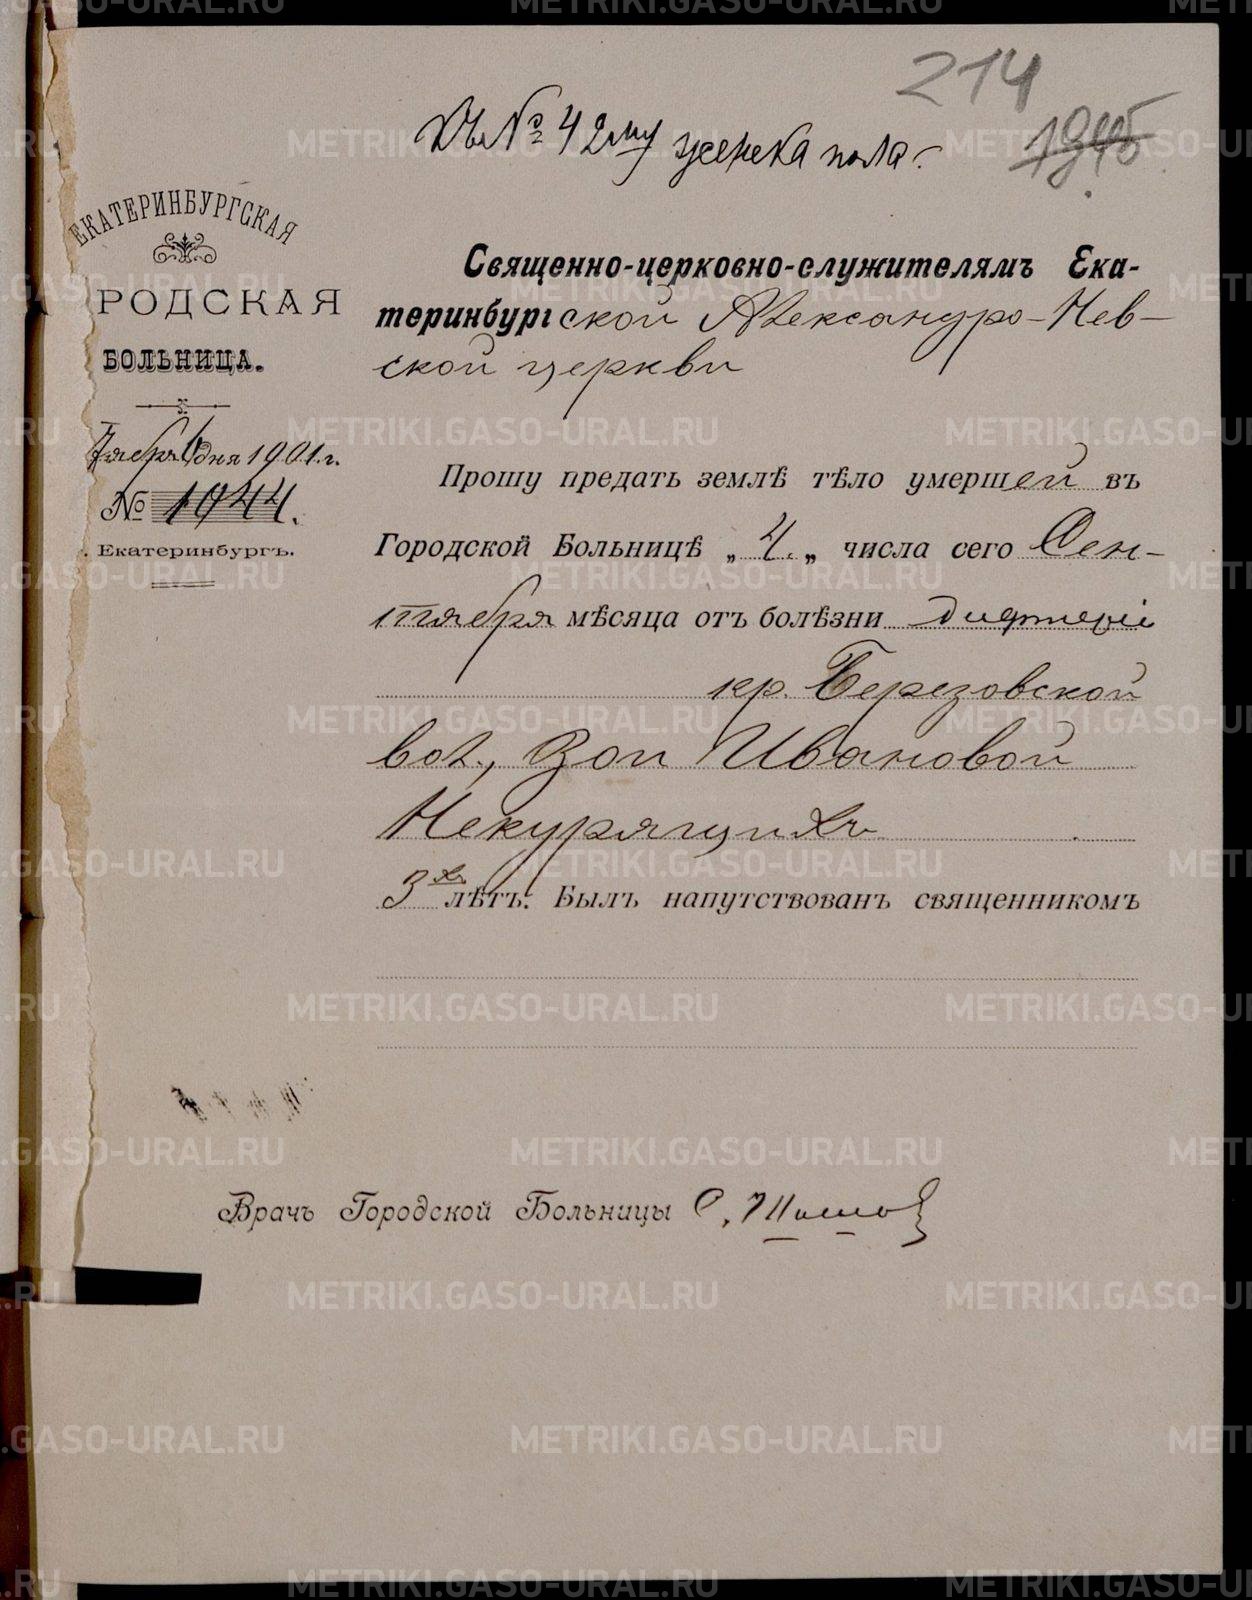 214
Къ № 42му женска пола.
1945
ЕКАТЕРИНБУРГСКАЯ
РОДСКАЯ
БОЛЬНИЦА.
тября дня 1901 г.
№ 1944.
Екатеринбургъ.
Священно-церковно-служителямъ Ека-
теринбургской Александро-Нев-
ской церкви
Прошу предать землѣ тѣло умершей въ
Городской Больницѣ „ 4. „ числа сего Сен-
тября мѣсяца отъ болѣзни дифтеріи
кр. Березовской
вол., Зои Ивановой
Некурящихъ
3хъ лѣтъ. Былъ напутствованъ священникомъ
Врачъ Городской Больницы
METRIKI.GASO-URAL.RU